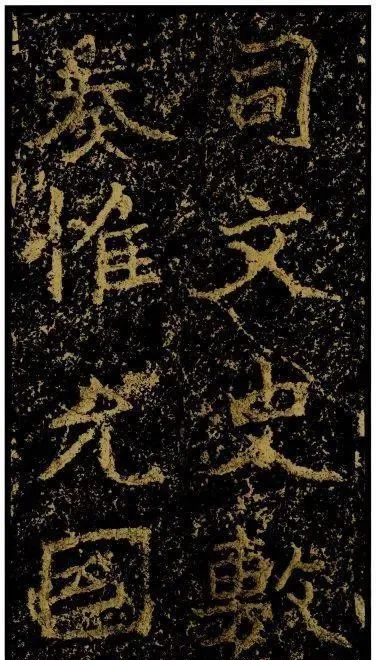 司文史敷
奏惟允國